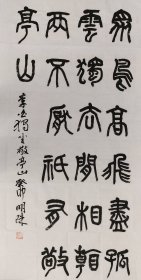 眾鳥高飛盡孤
雲獨去閒相看
兩不厭祇有敬
亭山
李白獨坐敬亭山癸卯明